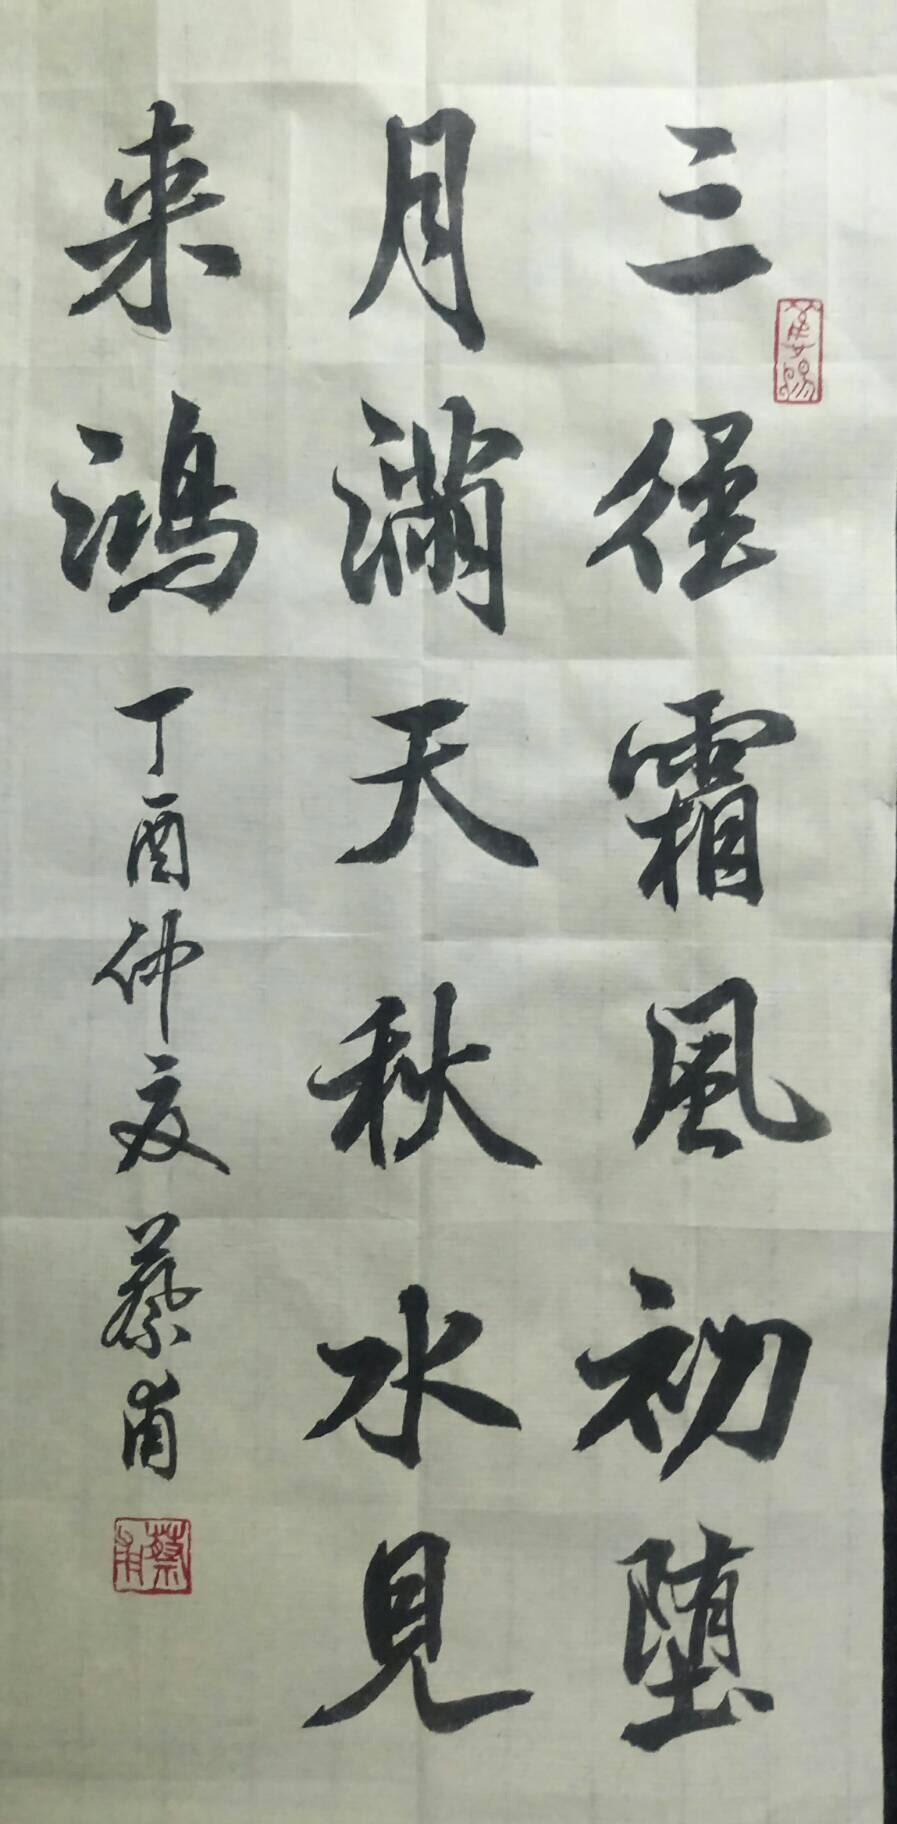 三徑霜風初堕
月滿天秋水見
来鴻 丁酉仲夏 蔡甫
蔡甫